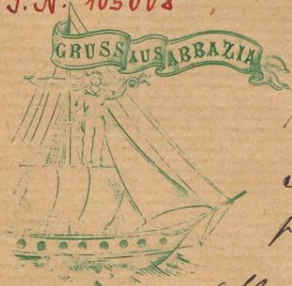 J. N. 105008
GRUSS AUS ABBAZIA